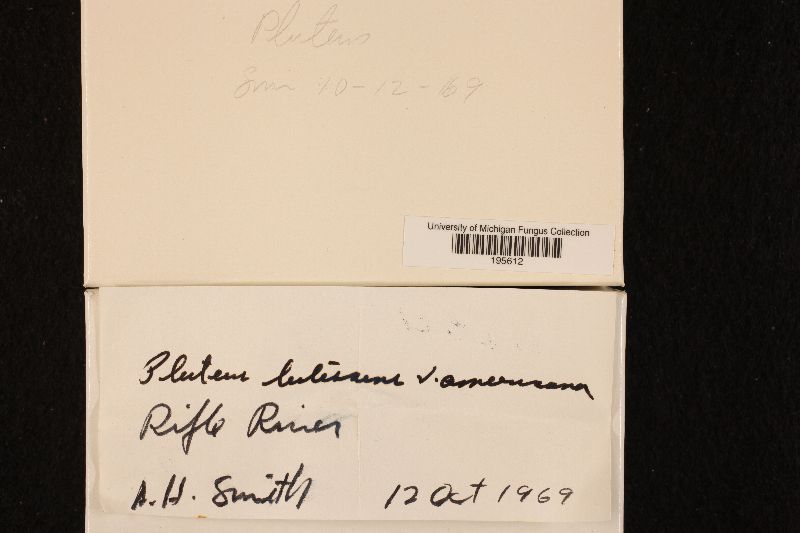 Pluteus
Smi 10-12-69
University of Michigan Fungus Collection
195612
Pluteus lutescens v. americana
Rifle River
A. H. Smith 12 Oct 1969